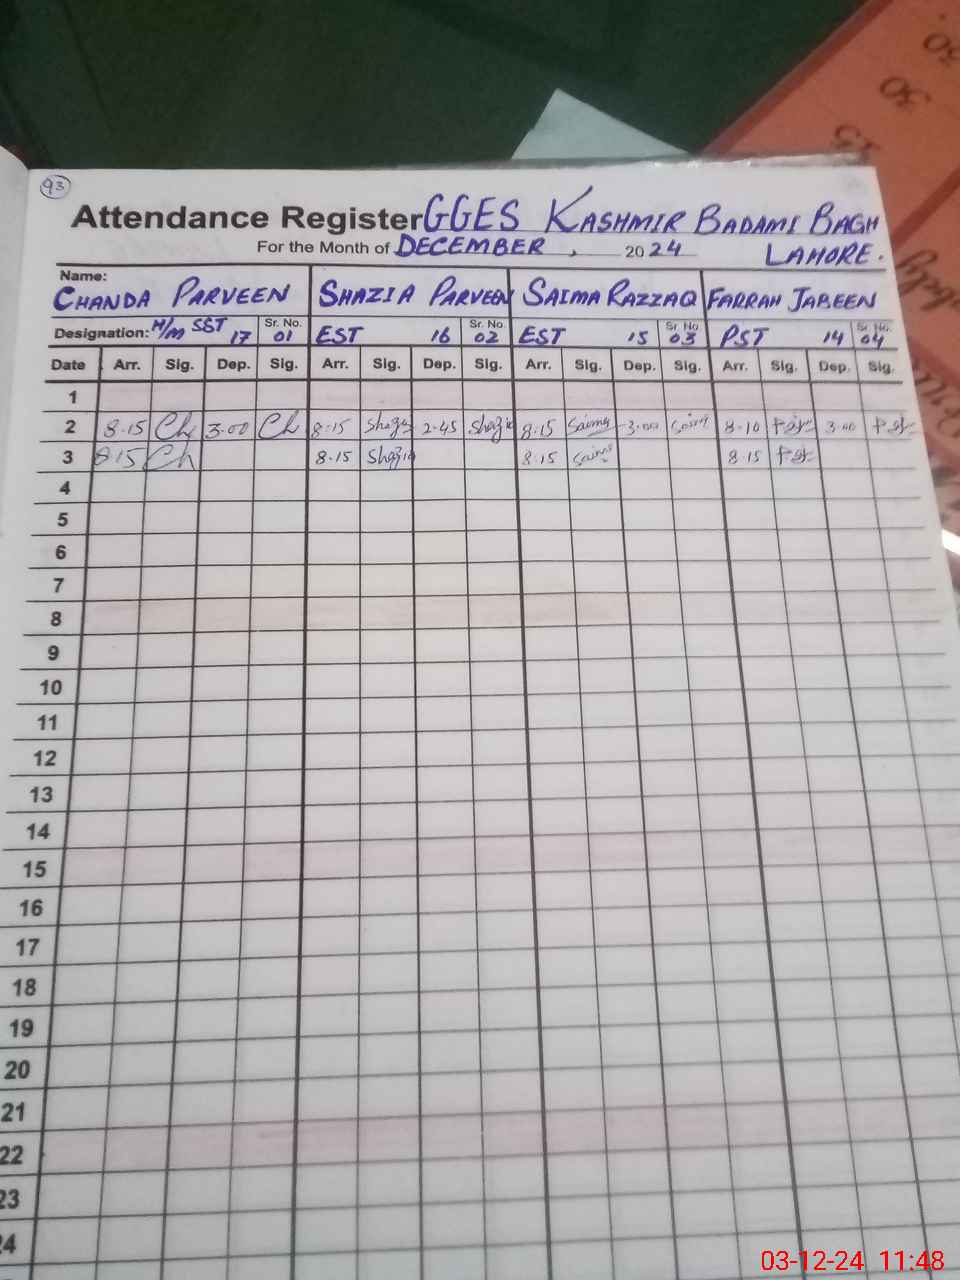 93
Attendance Register GGES KASHMIR BADAMI BAGH
For the Month of DECEMBER, 2024 LAHORE.
Name:
CHANDA PARVEEN SHAZIA PARVEEN SAIMA RAZZAQ FARRAH JABEEN
Designation: H/M SST 17 Sr. No. 01 EST 16 Sr. No. 02 EST 15 Sr. No 03 PST 14 Sr. No. 04
Date Arr. Sig. Dep. Sig. Arr. Sig. Dep. Sig. Arr. Sig. Dep. Sig. Arr. Sig. Dep. Sig.
1
2 8.15 Ch 3.00 Ch 8.15 Shazia 2.45 Shazia 8.15 Saima 3.00 Saima 8.10 3.00
3 8.15 Ch 8.15 Shazia 8.15 Saima 8.15
4
5
6
7
8
9
10
11
12
13
14
15
16
17
18
19
20
21
22
23
24
30
03-12-24 11:48